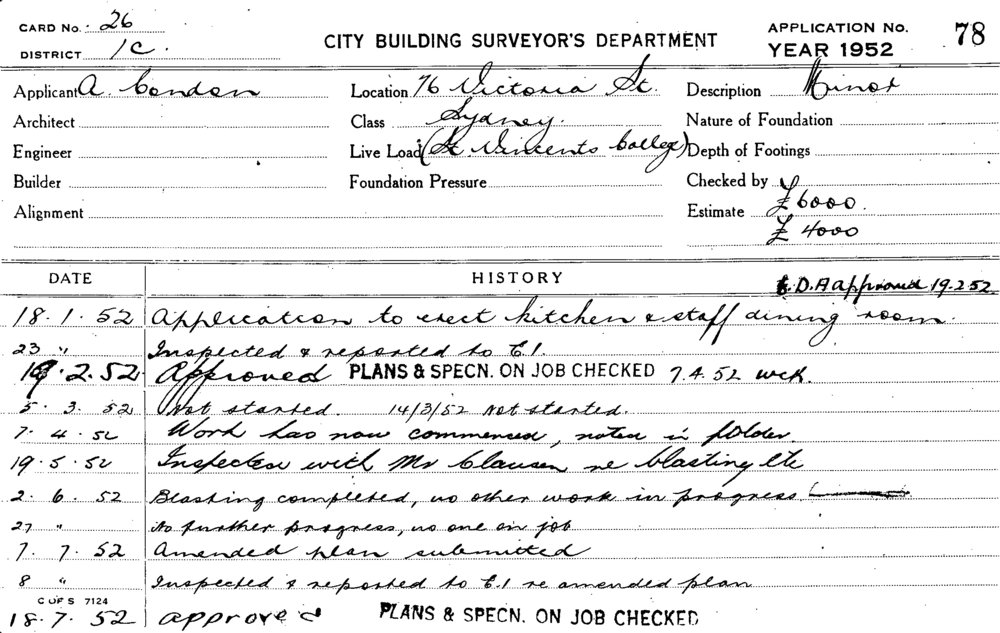 CARD No. 26
DISTRICT 1C.
CITY BUILDING SURVEYOR'S DEPARTMENT
APPLICATION No. 78
YEAR 1952
Applicant A. Condon Location 76 Victoria St. Description Minor
Architect Class Sydney. Nature of Foundation
Engineer Live Load (St. Vincents College) Depth of Footings
Builder Foundation Pressure Checked by
Alignment Estimate £6000.
£4000
DATE HISTORY D.A approved 19.2.52
18.1.52 Application to erect kitchen & staff dining room.
23 " Inspected & reported to C.I.
19.2.52 Approved PLANS & SPECN. ON JOB CHECKED 7.4.52 wck.
5.3.52 Not started. 14/3/52 Not started.
7.4.52 Work has now commenced, noted in folder.
19.5.52 Inspected with Mr Clausen re blasting etc
2.6.52 Blasting completed, no other work in progress.
27 " No further progress, no one on job
7.7.52 Amended plan submitted
8 " Inspected & reported to C.I re amended plan
C OF S 7124
18.7.52 approved PLANS & SPECN. ON JOB CHECKED